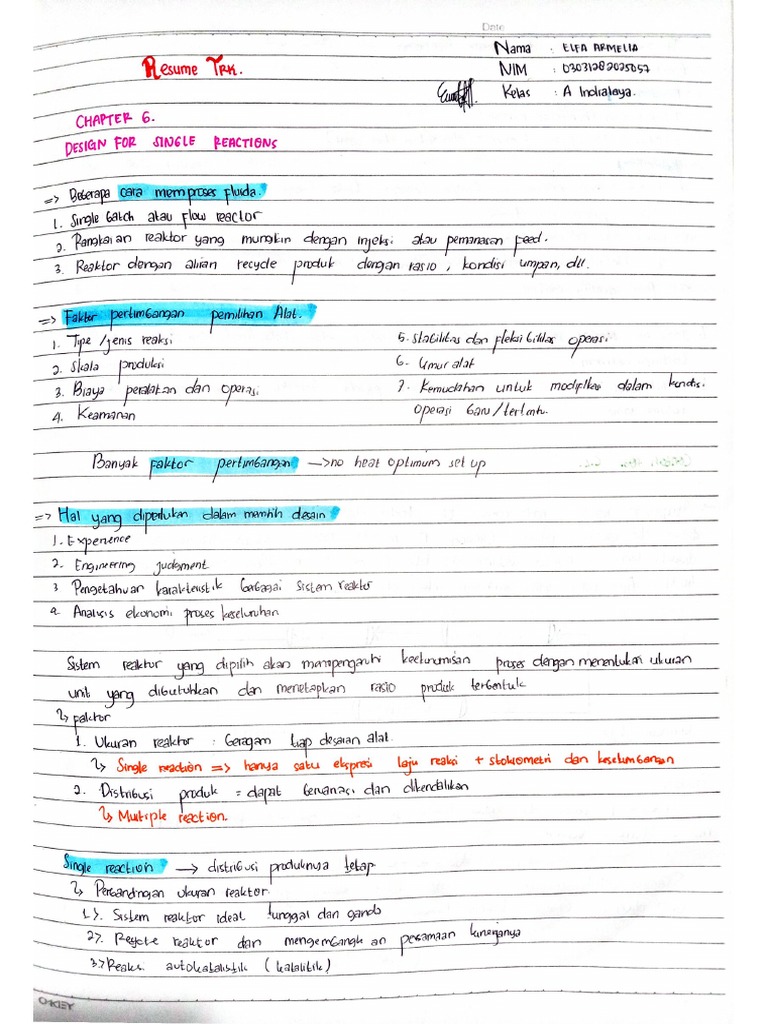 Date
Nama : ELFA ARMELIA
Resume TRK.
NIM : 03031282025057
Kelas : A Indralaya.
CHAPTER 6.
DESIGN FOR SINGLE REACTIONS
=> Beberapa cara memproses fluida.
1. Single batch atau flow reactor
2. Rangkaian reaktor yang mungkin dengan injeksi atau pemanasan feed.
3. Reaktor dengan aliran recycle produk dengan rasio, kondisi umpan, dll.
=> Faktor pertimbangan pemilihan Alat.
1. Tipe/jenis reaksi
2. Skala produksi
3. Biaya peralatan dan operasi
4. Keamanan
5. Stabilitas dan fleksibilitas operasi
6. Umur alat
7. Kemudahan untuk modifikasi dalam kondisi
operasi baru/tertentu.
Banyak faktor pertimbangan → no heat optimum set up
=> Hal yang diperlukan dalam memilih desain
1. Experience
2. Engineering judgment
3 Pengetahuan karakteristik berbagai sistem reaktor
4. Analisis ekonomi proses keseluruhan
Sistem reaktor yang dipilih akan mempengaruhi keekonomisan proses dengan menentukan ukuran
unit yang dibutuhkan dan menetapkan rasio produk terbentuk
↳ faktor
1. Ukuran reaktor : beragam tiap desaian alat.
↳ Single reaction => hanya satu ekspresi laju reaksi + stokiometri dan kesetimbangan
2. Distribusi produk = dapat bervariasi dan dikendalikan
↳ Multiple reaction.
Single reaction → distribusi produknya tetap
↳ Perbandingan ukuran reaktor.
1>. Sistem reaktor ideal tunggal dan ganda
2>. Recycle reaktor dan mengembangkan persamaan kinerjanya
3.> Reaksi autokatalistik (katalitik)
O-KEY